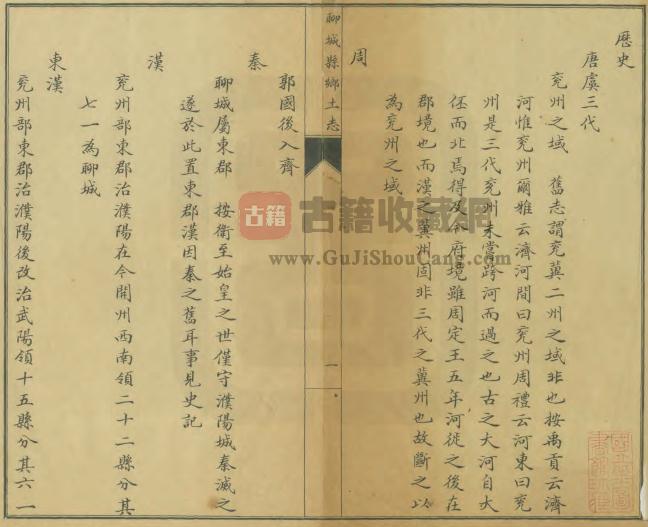 歷史
唐虞三代
兖州之域 舊志謂兖冀二州之域非也按禹貢云濟
河惟兖州爾雅云濟河間曰兖州周禮云河東曰兖
州是三代兖州未嘗跨河而過之也古之大河自大
伾而北焉得及今府境雖周定王五年河徙之後在
郡境也而漢之冀州固非三代之冀州也故斷之以
為兖州之域
周
聊城縣鄉土志
一
郭國後入齊
秦
聊城屬東郡 按衛至始皇之世僅守濮陽城秦滅之
遂於此置東郡漢因秦之舊耳事見史記
漢
兖州部東郡治濮陽在今開州西南領二十二縣分其
七一為聊城
東漢
兖州部東郡治濮陽後改治武陽領十五縣分其六一
古籍 古籍收藏網
www.GuJiShouCang.com